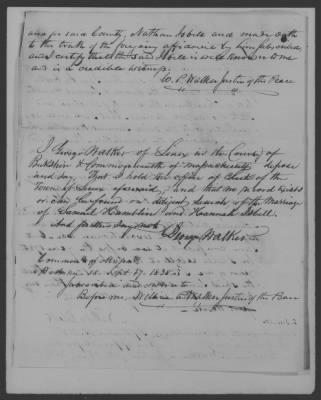 and for said County, Nathan Isbell and made oath
to the truth of the foregoing affidavit by him subscribed
and certify that the said Isbell is well known to me
and is a credible witness.
W. P. Walker Justice of the Peace
I George Walker of Lenox in the County of
Berkshire & Commonwealth of Massachusetts, depose
and say, That I hold the office of Clerk of the
Town of Lenox aforesaid; and that no record exists
or can be found on diligent search of the Marriage
of Samuel Hamblin and Hannah Isbell.
And further say not
George Walker
Commonwealth of
Berkshire ss. Sept. 17. 1838
Subscribed and
Before me, William P. Walker Justice of the Peace